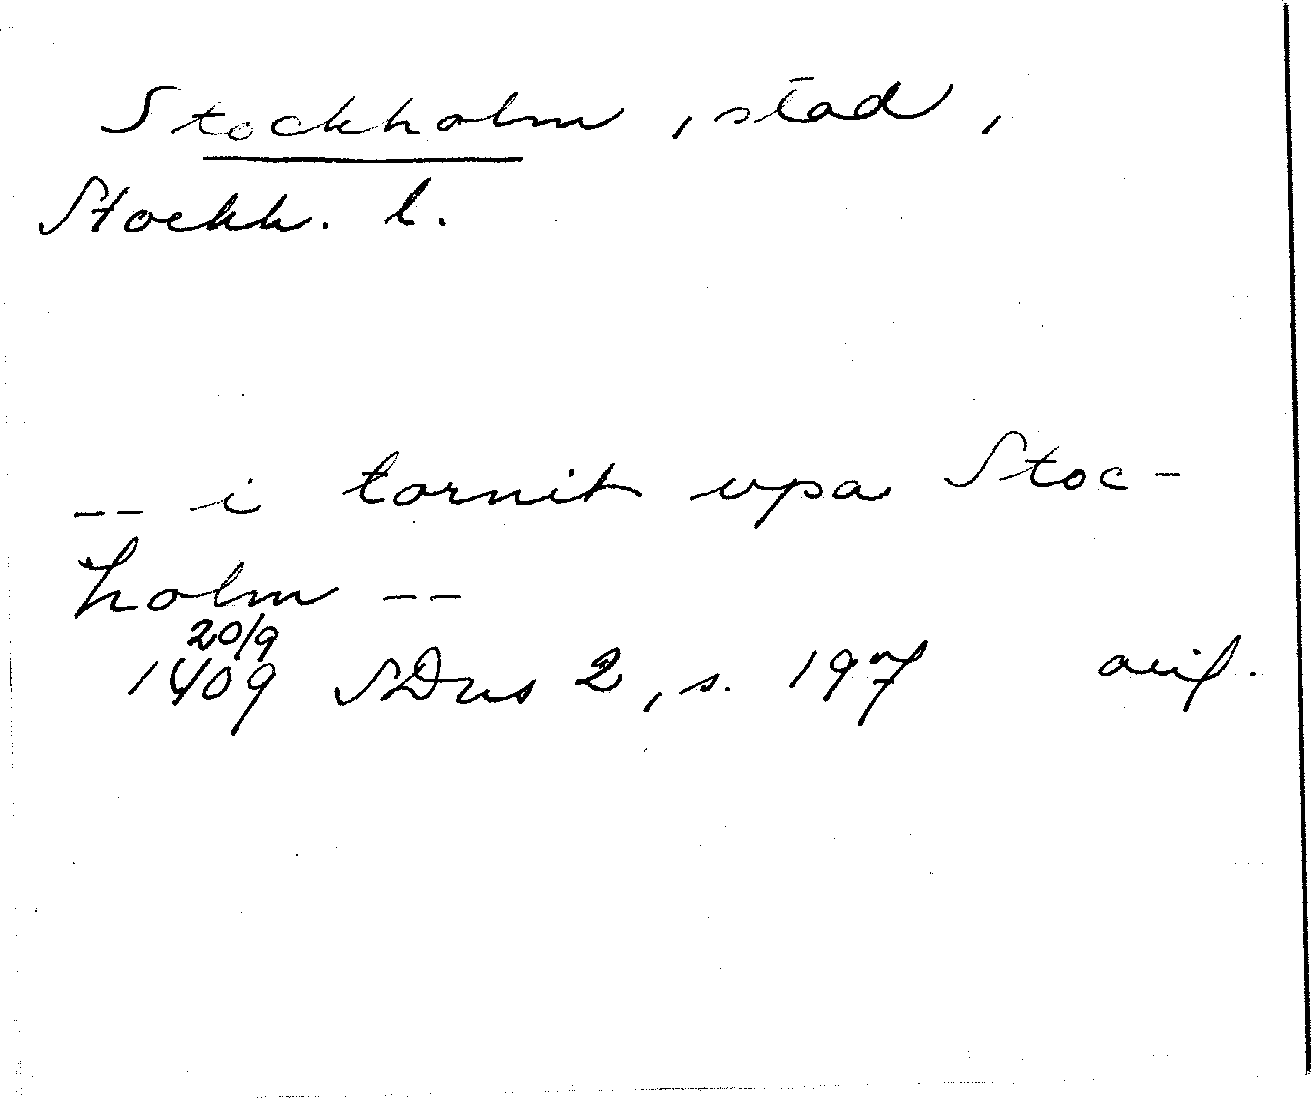 Stockholm, stad,
Stockh. l.
-- i tornit vpa Stoc-
holm --
20/9
1409 SDns 2, s. 197 avs.